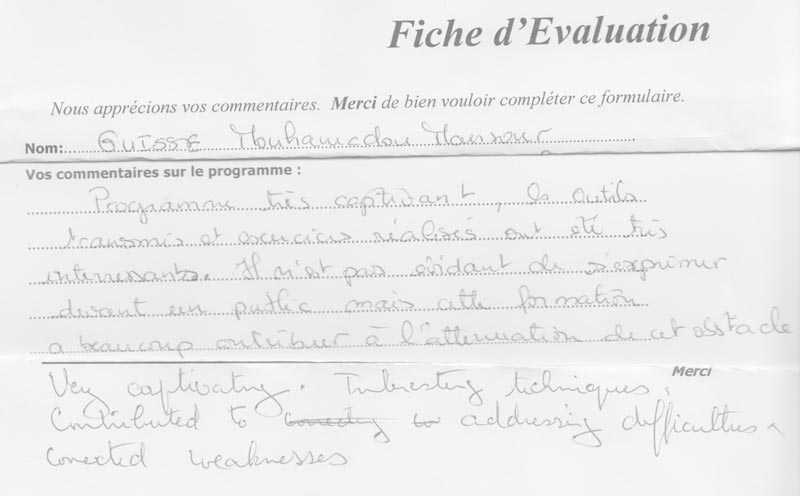 Fiche d'Evaluation
Nous apprécions vos commentaires. Merci de bien vouloir compléter ce formulaire.
Nom: GUISSE Mouhamadou Mansour
Vos commentaires sur le programme :
Programme très captivant, les outils
transmis et exercices réalisés ont été très
interressants. Il n'est pas évidant de s'exprimer
devant un public mais cette formation
a beaucoup contribuer à l'attenuation de cet obstacle
Merci
Very captivating. Interesting techniques.
Contributed to addressing difficulties
Corrected weaknesses